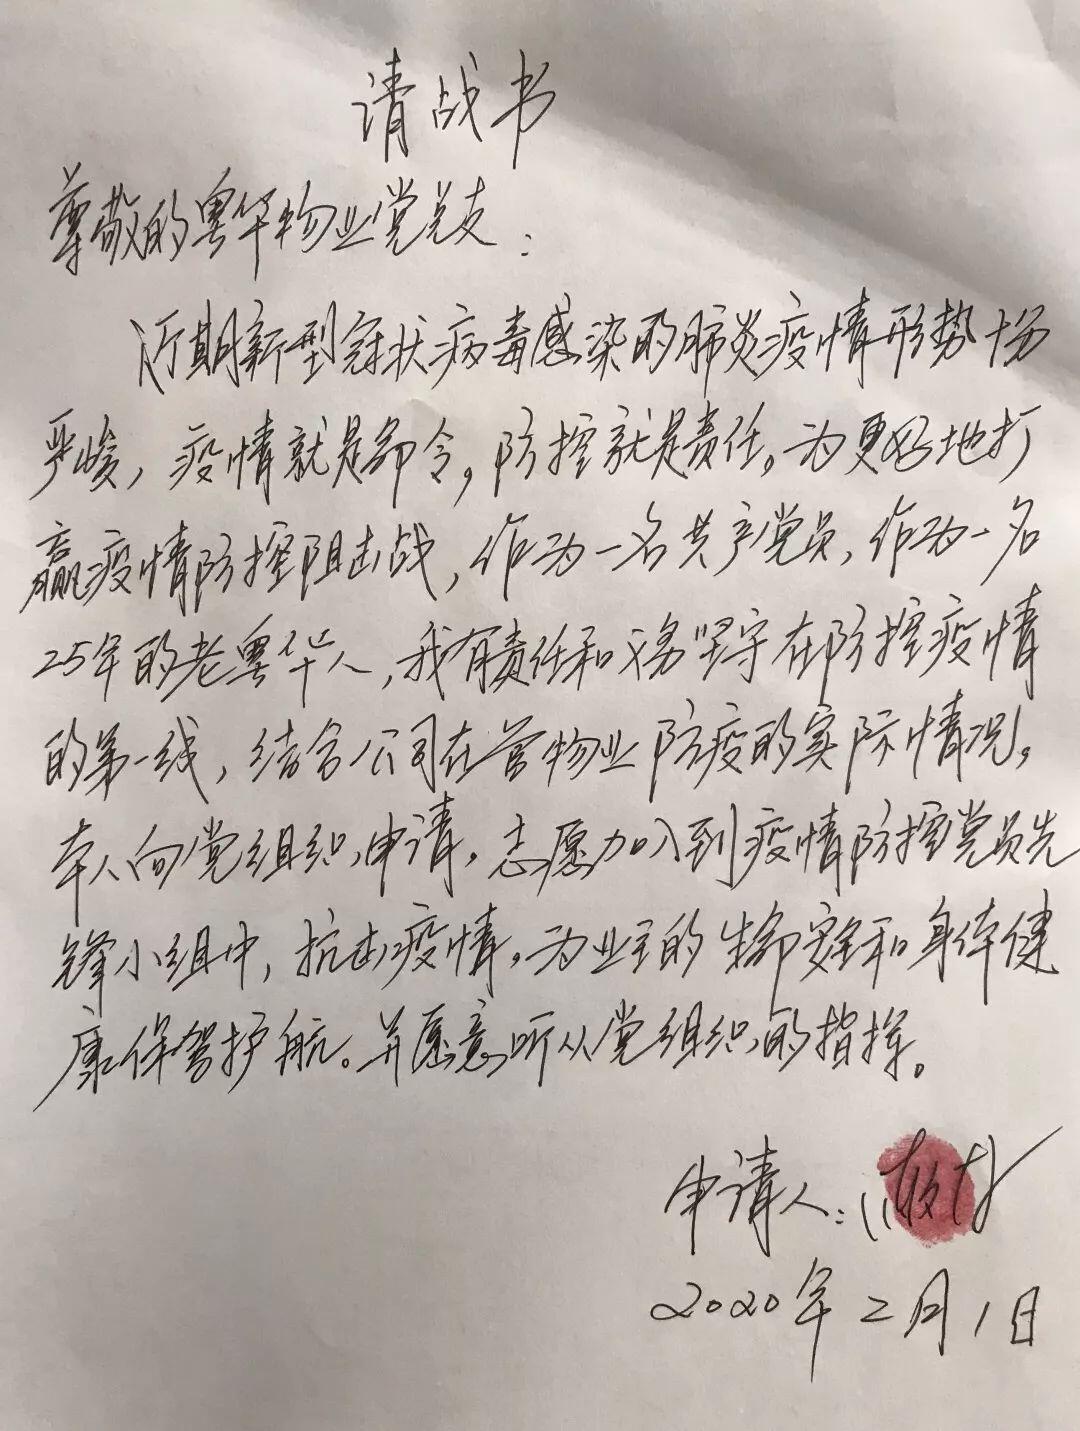 请战书
尊敬的粤华物业党总支：
近期新型冠状病毒感染的肺炎疫情形势十分
严峻，疫情就是命令，防控就是责任。为更好地打
赢疫情防控阻击战，作为一名共产党员，作为一名
25年的老粤华人，我有责任和义务坚守在防控疫情
的第一线，结合公司在管物业防疫的实际情况。
本人向党组织申请，志愿加入到疫情防控党员先
锋小组中，抗击疫情，为业主的生命安全和身体健
康保驾护航。并愿意听从党组织的指挥。
申请人：
2020年2月1日